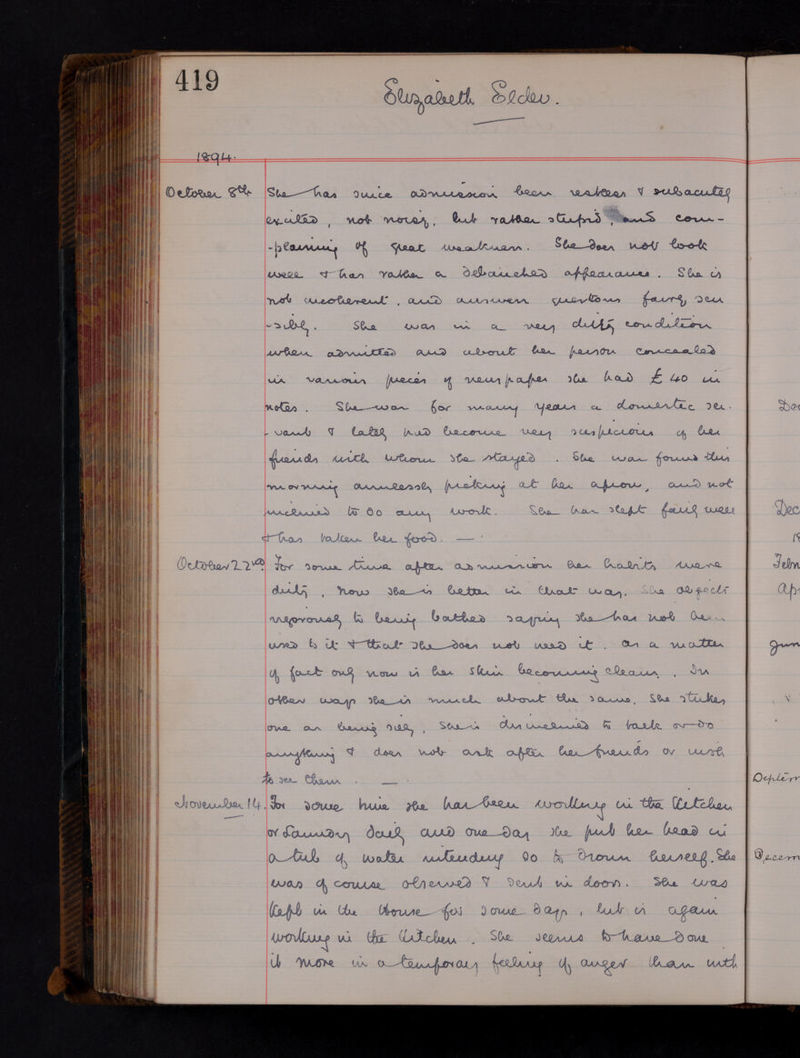 419
Elizabeth Elder.
1894.
October 8th She has since admission been restless & subacutely
excited, not noisy, but rather stupid and com-
-plaining of great weakness. She does not look
well & has rather a debauched appearance. She is
not incoherent, and answers questions fairly sen
-sibly. She was in a very dirty condition
when admitted and about her person concealed
in various pieces of newspaper she had £40 in
notes. She was for many years a domestic ser-
-vant & lately had become very suspicious of her
friends with whom she stayed. She was found this
morning aimlessly picking at her apron, and not
inclined to do any work. She has slept fairly well
& has taken her food. —
October 22nd For some time after admission her habits were
dirty, now she is better in that way. She objects
vigorously to being bathed saying she has not been
used to it & that she does not need it. As a matter
of fact only now is her skin becoming clean. In
other ways she is much about the same. She strikes
one as being silly. She is disinclined to talk or do
anything & does not ask after her friends or wish
to see them. —
November 14. For some time she has been working in the Kitchen
or Laundry daily and one day she put her head in
a tub of water intending so to drown herself. She
was of course observed & sent in doors. She was
kept in the House for some days, but is again
working in the Kitchen. She seems to have done
it more in a temporary feeling of anger than with
Dec
Dec
Ap
Decem